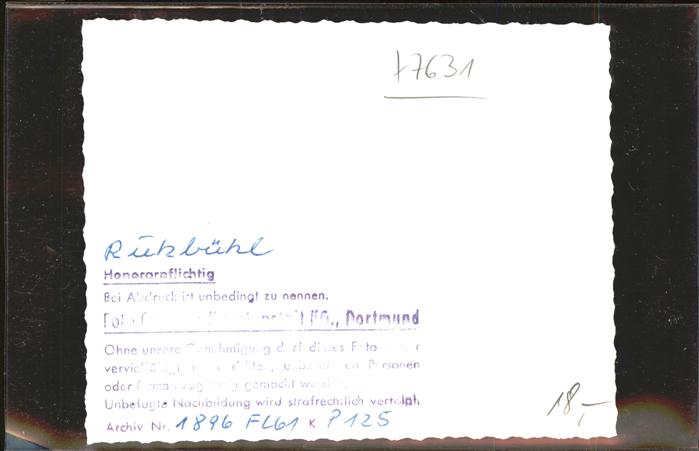 17631
Honorarpflichtig
Bei Abdruck ist unbedingt zu nennen.
Foto KG., Dortmund
Ohne unsere Genehmigung darf dieses Foto
Personen
oder Firmen zugängig gemacht werden.
Unbefugte Nachbildung wird strafrechtlich verfolgt.
Archiv Nr. 1896 FL61 K P125
18,-